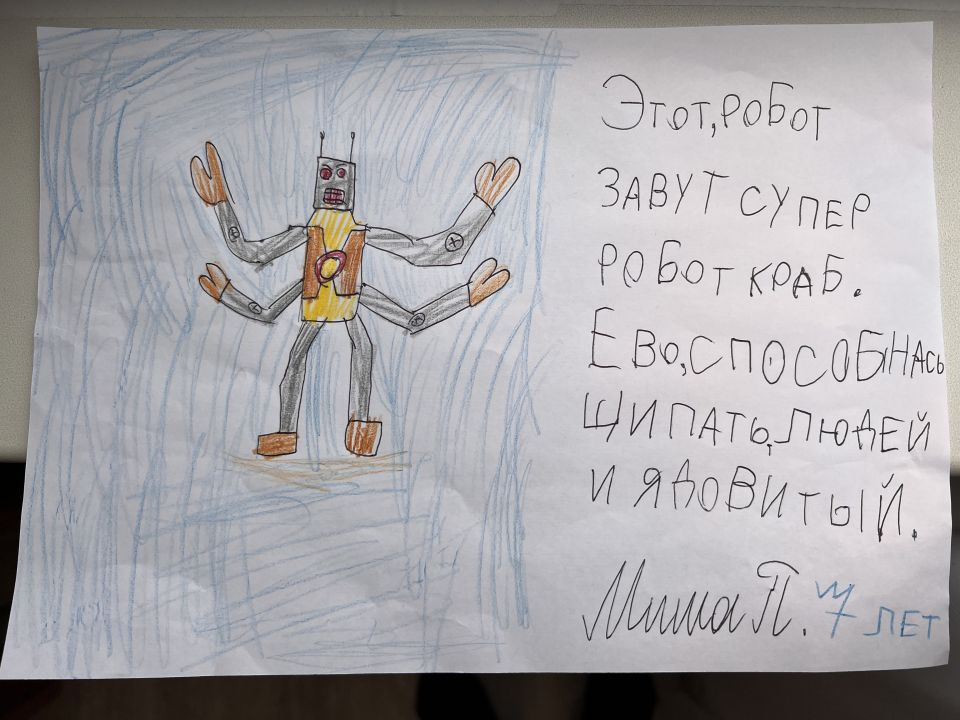 Этот, робот
завут супер
робот краб.
Ево, способнась
щипать, людей
и ядовитый.
Миша П. 7 лет